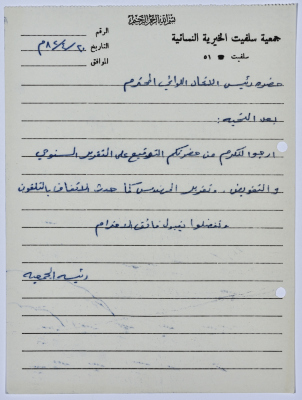 بسم الله الرحمن الرحيم
جمعية سلفيت الخيرية النسائية
سلفيت ☎ ٥١
الرقم
التاريخ ٢٠/٤/٨٤ م
الموافق
حضرة رئيس الاتحاد اللوائي المحترم
بعد التحية:
ارجو التكرم من حضرتكم التوقيع على التقرير السنوي
والتفويض، وتقرير المهندس كما حدث الاتفاق بالتلفون
وتفضلوا بقبول فائق الاحترام
رئيسة الجمعية